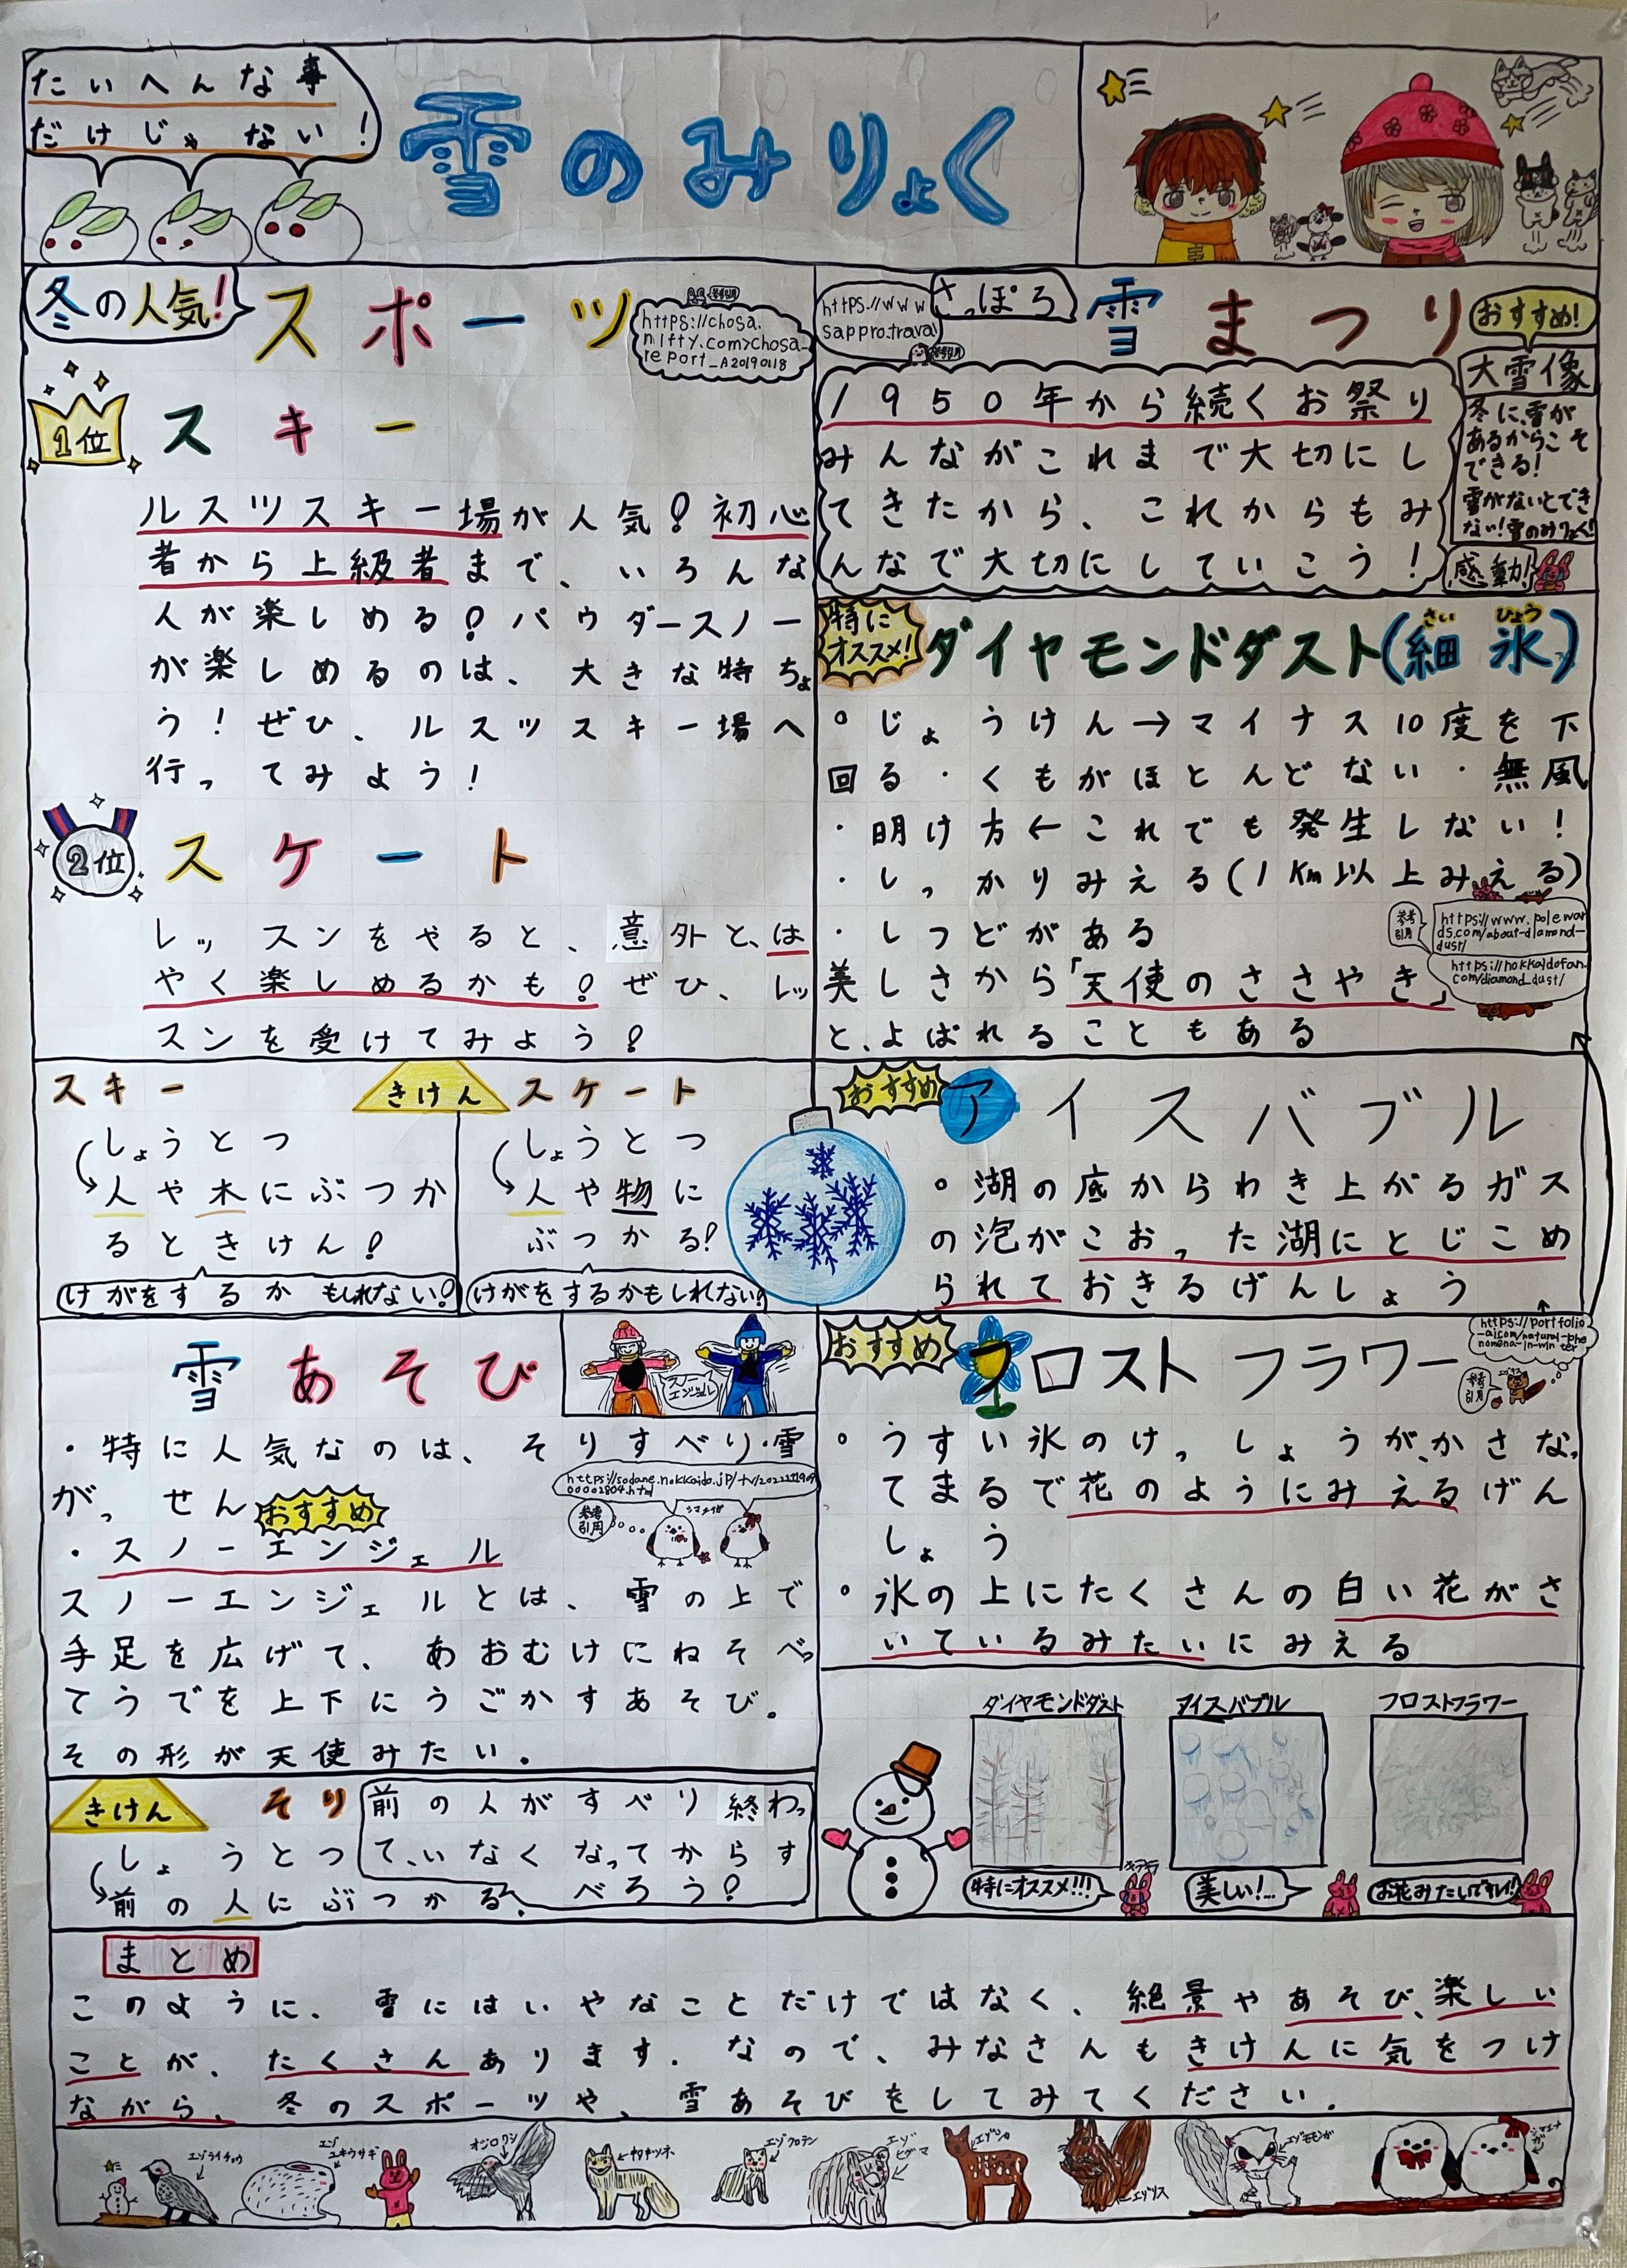 たいへんな事
だけじゃない!
雪のみりょく
冬の人気!
スポーツ
https://chosa.
nifty.com>chosa_
report_A20190118
1位
スキー
ルスツスキー場が人気!初心
者から上級者まで、いろんな
人が楽しめる!パウダースノー
が楽しめるのは、大きな特ちょ
う!ぜひ、ルスツスキー場へ
行ってみよう!
2位
スケート
レッスンをやると、意外と、は
やく楽しめるかも!ぜひ、レッ
スンを受けてみよう!
きけん
スキー
しょうとつ
人や木にぶつか
るときけん!
けがをするかもしれない!
スケート
しょうとつ
人や物に
ぶつかる!
けがをするかもしれない!
雪あそび
スノー
エンジェル
・特に人気なのは、そりすべり・雪
がっせん
https://sodane.hokkaido.jp/tv/202211909
00002804.html
参考
引用
シマエナガ
おすすめ
・スノーエンジェル
スノーエンジェルとは、雪の上で
手足を広げて、あおむけにねそべっ
てうでを上下にうごかすあそび。
その形が天使みたい。
きけん
そり
しょうとつ
前の人にぶつかる。
前の人がすべり終わっ
て、いなくなってからす
べろう!
https://www
sappro.traval
さっぽろ
雪まつり
おすすめ!
大雪像
冬に、雪が
あるからこそ
できる!
雪がないとでき
ない!雪のみりょく!
感動!
1950年から続くお祭り
みんながこれまで大切にし
てきたから、これからもみ
んなで大切にしていこう!
特に
オススメ!
ダイヤモンドダスト(細氷)
さいひょう
°じょうけん→マイナス10度を下
回る・くもがほとんどない・無風
・明け方←これでも発生しない!
・しっかりみえる(1Km以上みえる)
・しつどがある
美しさから「天使のささやき」
と、よばれることもある
参考
引用
https://www.polewar
ds.com/about-diamond-
dust/
https://hokkaidofan.
com/diamond_dust/
おすすめ
アイスバブル
°湖の底からわき上がるガス
の泡がこおった湖にとじこめ
られておきるげんしょう
おすすめ
フロストフラワー
https://portfolio
-ai.com/natural-phe
nomena-in-winter
参考
引用
エゾリス
°うすい氷のけっしょうが、かさなっ
てまるで花のようにみえるげん
しょう
°氷の上にたくさんの白い花がさ
いているみたいにみえる
ダイヤモンドダスト
アイスバブル
フロストフラワー
特にオススメ!!!
キラキラ
美しい!...
お花みたいでキレイ!!
まとめ
このように、雪にはいやなことだけではなく、絶景やあそび、楽しい
ことが、たくさんあります。なので、みなさんもきけんに気をつけ
ながら、冬のスポーツや、雪あそびをしてみてください。
エゾライチョウ
エゾ
ユキウサギ
オジロワシ
キタキツネ
エゾクロテン
エゾ
ヒグマ
エゾシカ
エゾリス
エゾモモンガ
シマエナガ